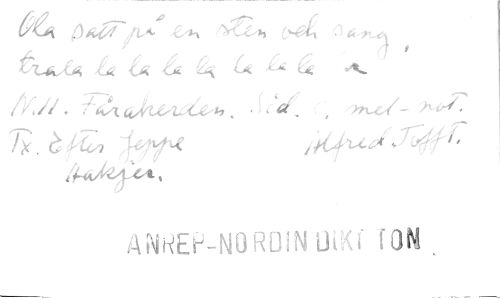 Ola satt på en sten och sang,
trala la la la la la la la la
N.H. Fårakerden. Sid. c. mel-not.
Tx. Efter Jeppe Alfred Tofft.
Aakjer.
ANREP-NORDIN DIKT TON